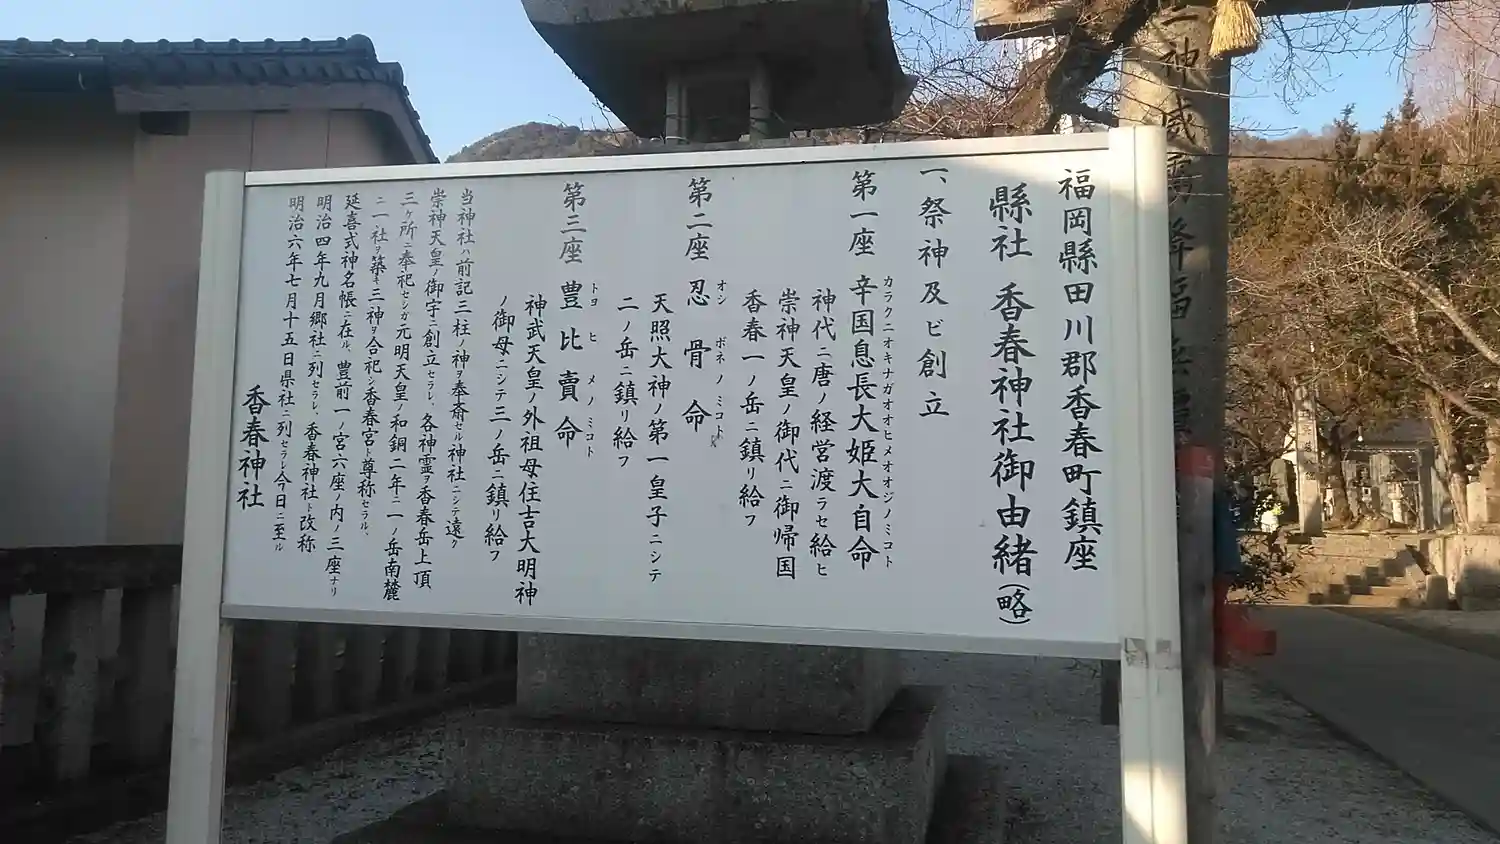 福岡縣田川郡香春町鎮座
縣社 香春神社御由緒(略)
一、祭神及ビ創立
第一座 辛国息長大姫大自命
カラクニオキナガオオヒメオオジノミコト
神代ニ唐ノ経営渡ラセ給ヒ
崇神天皇ノ御代ニ御帰国
香春一ノ岳ニ鎮リ給フ
第二座 忍骨命
オシボネノミコト
天照大神ノ第一皇子ニシテ
二ノ岳ニ鎮リ給フ
第三座 豊比賣命
トヨヒメノミコト
神武天皇ノ外祖母住吉大明神
ノ御母ニシテ三ノ岳ニ鎮リ給フ
当神社ハ前記三柱ノ神ヲ奉斎セル神社ニシテ遠ク
崇神天皇ノ御宇ニ創立セラレ、各神霊ヲ香春岳上頂
三ヶ所ニ奉祀セシガ元明天皇ノ和銅二年ニ一ノ岳南麓
ニ一社ヲ築キ三神ヲ合祀シ香春宮ト尊称セラル、
延喜式神名帳ニ在ル、豊前一ノ宮六座ノ内ノ三座ナリ
明治四年九月郷社ニ列セラレ、香春神社ト改称
明治六年七月十五日県社ニ列セラレ今日ニ至ル
香春神社
神威